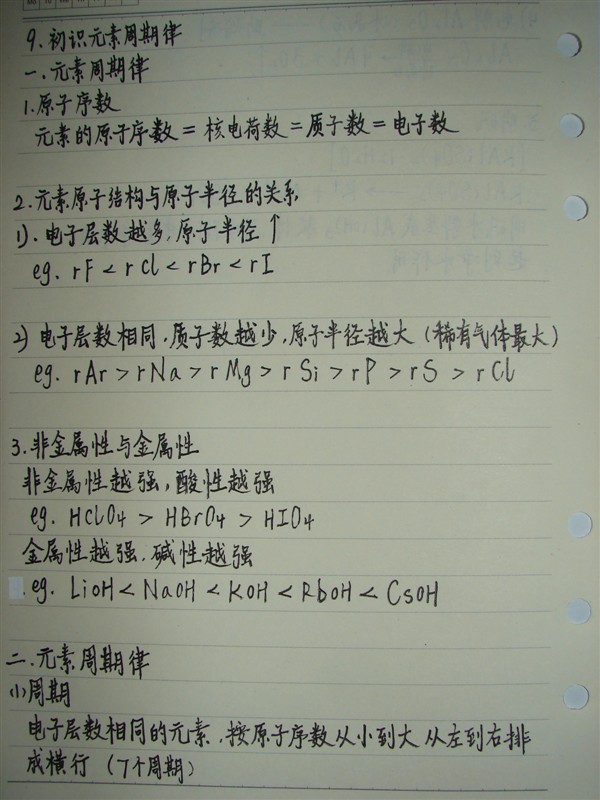 9.初识元素周期律
一.元素周期律
1.原子序数
元素的原子序数=核电荷数=质子数=电子数
2.元素原子结构与原子半径的关系
1).电子层数越多,原子半径↑
eg. rF<rCl<rBr<rI
2)电子层数相同,质子数越少,原子半径越大(稀有气体最大)
eg. rAr>rNa>rMg>rSi>rP>rS>rCl
3.非金属性与金属性
非金属性越强,酸性越强
eg. HClO4>HBrO4>HIO4
金属性越强,碱性越强
eg. LiOH<NaOH<KOH<RbOH<CsOH
二.元素周期律
(1)周期
电子层数相同的元素,按原子序数从小到大从左到右排
成横行(7个周期)